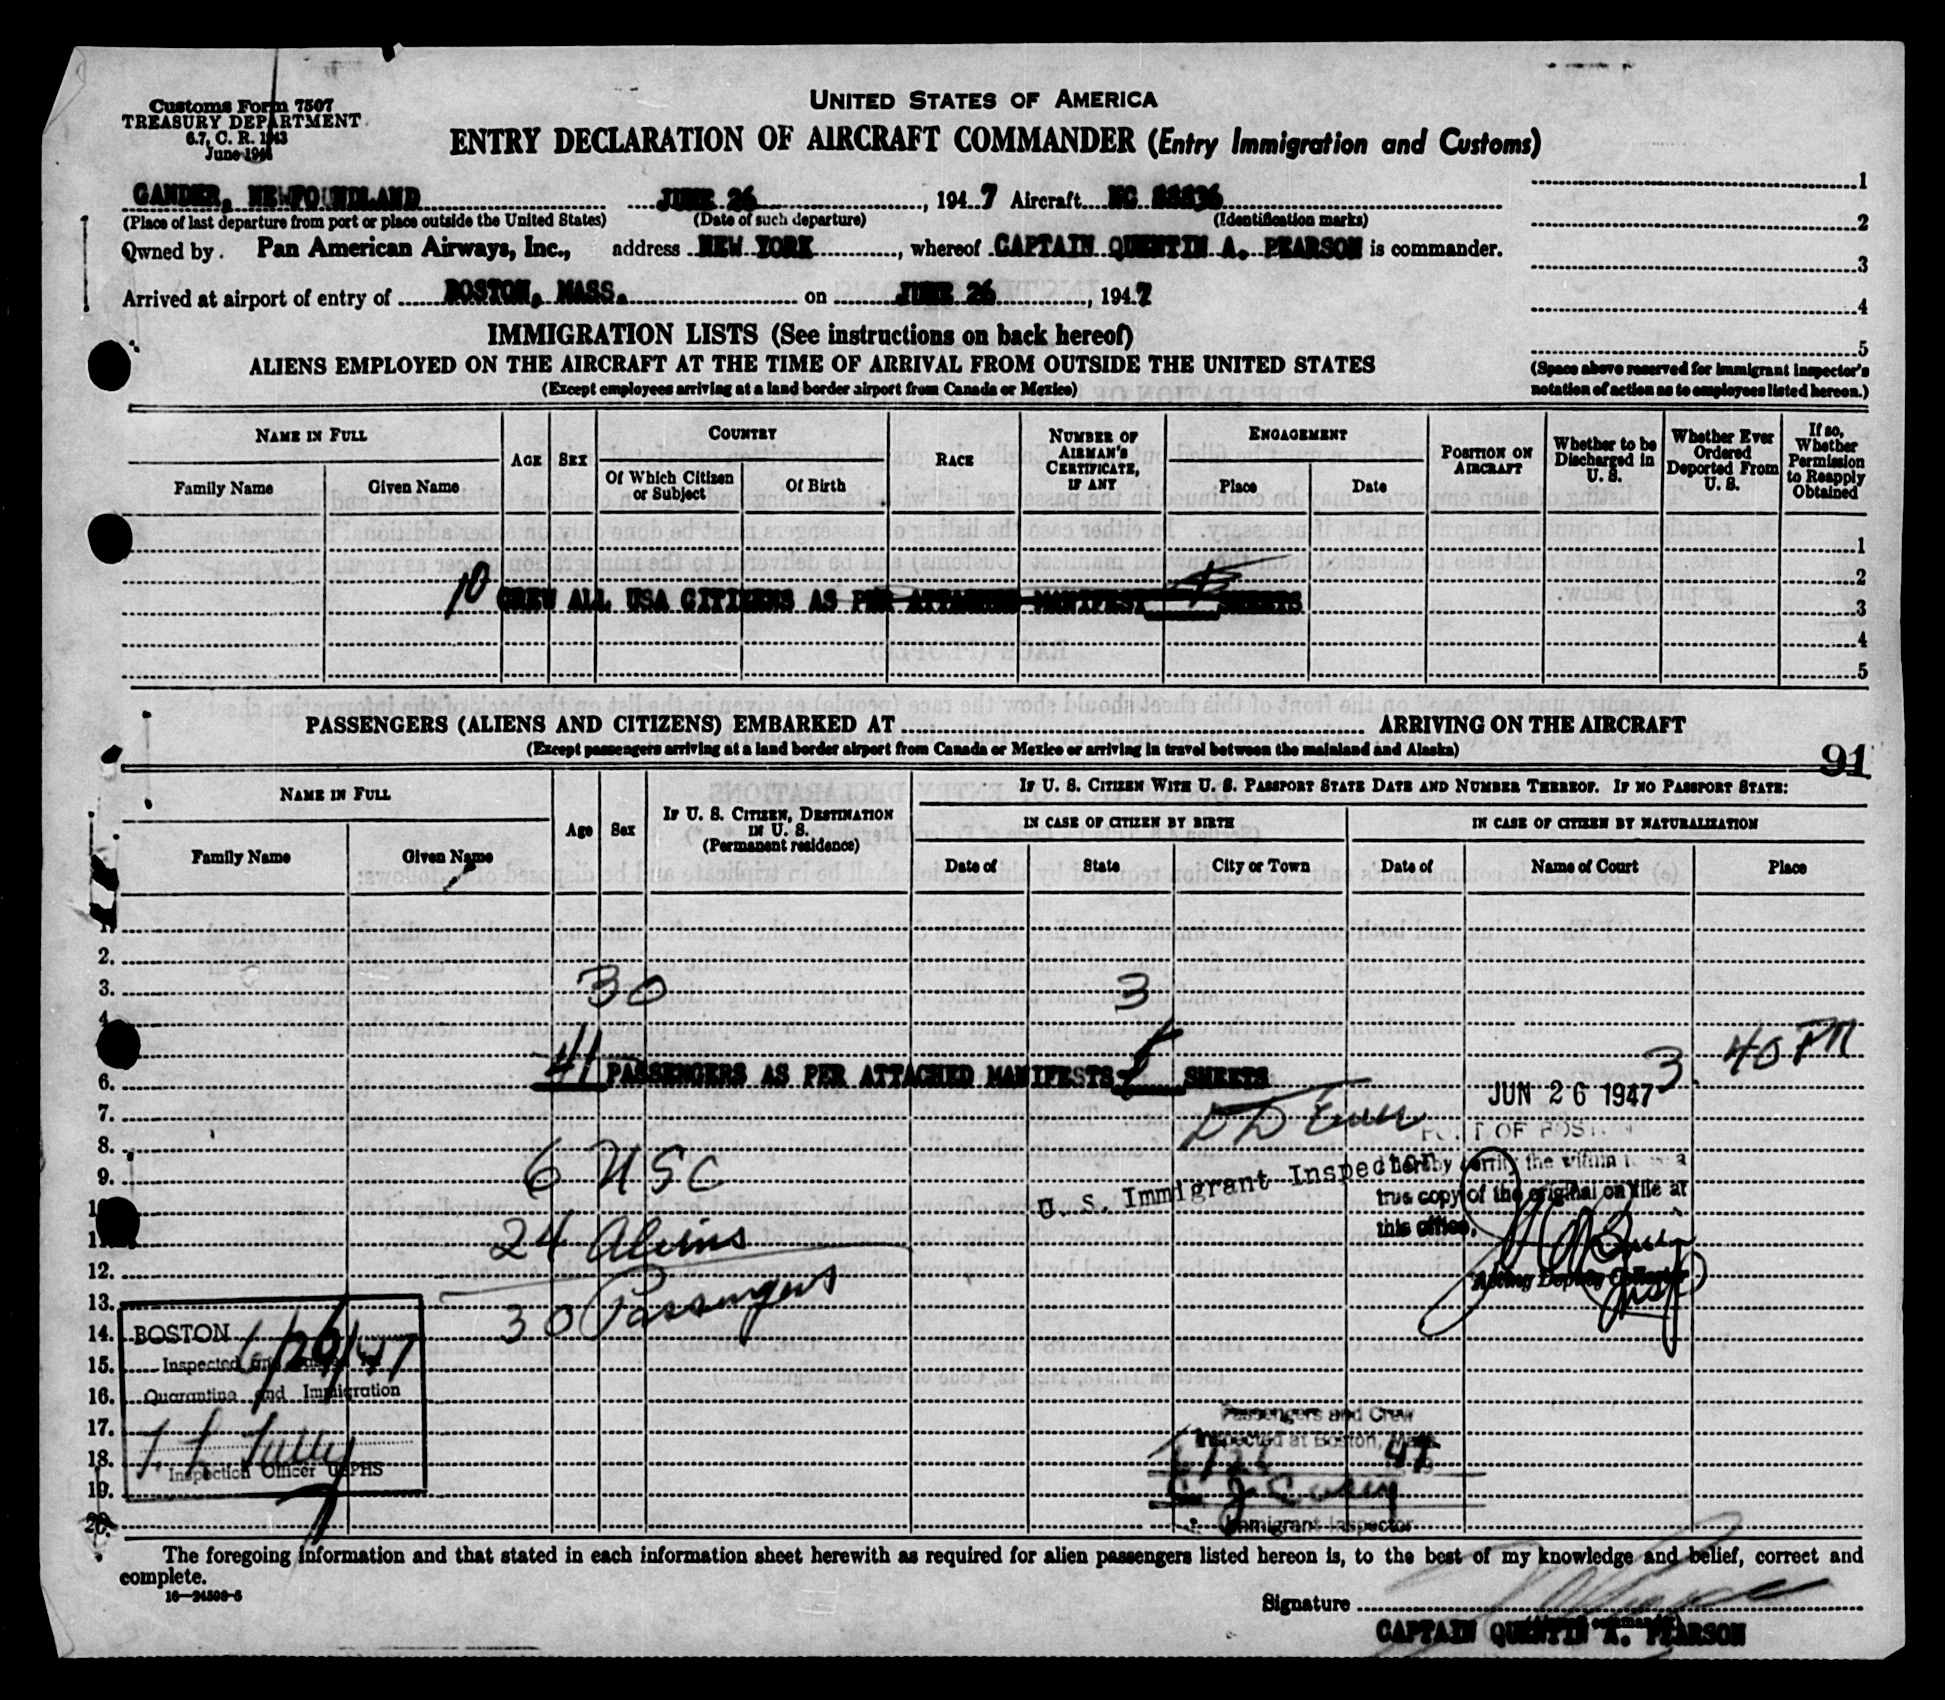 Customs Form 7507
TREASURY DEPARTMENT
6.7, C. R. 1943
June 1944
UNITED STATES OF AMERICA
ENTRY DECLARATION OF AIRCRAFT COMMANDER (Entry Immigration and Customs)
GANDER, NEWFOUNDLAND JUNE 26, 1947 Aircraft NC 88836
(Place of last departure from port or place outside the United States) (Date of such departure) (Identification marks)
Owned by Pan American Airways, Inc., address NEW YORK, whereof CAPTAIN QUENTIN A. PEARSON is commander.
Arrived at airport of entry of BOSTON, MASS. on JUNE 26, 1947
1
2
3
4
5
(Space above reserved for immigrant inspector's
notation of action as to employees listed hereon.)
IMMIGRATION LISTS (See instructions on back hereof)
ALIENS EMPLOYED ON THE AIRCRAFT AT THE TIME OF ARRIVAL FROM OUTSIDE THE UNITED STATES
(Except employees arriving at a land border airport from Canada or Mexico)
NAME IN FULL
Family Name
Given Name
AGE
SEX
COUNTRY
Of Which Citizen
or Subject
Of Birth
RACE
NUMBER OF
AIRMAN'S
CERTIFICATE,
IF ANY
ENGAGEMENT
Place
Date
POSITION ON
AIRCRAFT
Whether to be
Discharged in
U. S.
Whether Ever
Ordered
Deported From
U. S.
If so,
Whether
Permission
to Reapply
Obtained
1
2
10 CREW ALL USA CITIZENS AS PER ATTACHED MANIFEST SHEETS
3
4
5
PASSENGERS (ALIENS AND CITIZENS) EMBARKED AT ARRIVING ON THE AIRCRAFT
(Except passengers arriving at a land border airport from Canada or Mexico or arriving in travel between the mainland and Alaska)
91
NAME IN FULL
Family Name
Given Name
Age
Sex
IF U. S. CITIZEN, DESTINATION
IN U. S.
(Permanent residence)
IF U. S. CITIZEN WITH U. S. PASSPORT STATE DATE AND NUMBER THEREOF. IF NO PASSPORT STATE:
IN CASE OF CITIZEN BY BIRTH
Date of
State
City or Town
IN CASE OF CITIZEN BY NATURALIZATION
Date of
Name of Court
Place
1.
2.
3. 30 3
4
41 PASSENGERS AS PER ATTACHED MANIFESTS SHEETS
3.40 PM
6.
JUN 26 1947
7.
PORT OF BOSTON
8.
I hereby certify the within is a
9. 6 USC
U. S. Immigrant Inspector
true copy of the original on file at
10
this office.
11.
24 Aliens
12.
Acting Deputy Collector
13.
30 Passengers
14.
BOSTON 6/26/47
15.
Inspected and
16.
Quarantine and Immigration
17.
18.
Inspection Officer USPHS
19.
20.
Passengers and Crew
Inspected at Boston, Mass.
6/26 47
Immigrant Inspector
The foregoing information and that stated in each information sheet herewith as required for alien passengers listed hereon is, to the best of my knowledge and belief, correct and
complete.
16—24500-5
Signature
CAPTAIN QUENTIN A. PEARSON